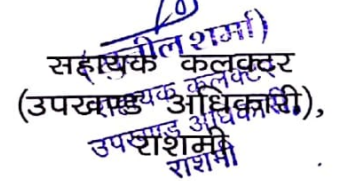 (सुनील शर्मा)
सहायक कलक्टर
(उपखण्ड अधिकारी),
राशमी
सहायक कलक्टर
उपखण्ड अधिकारी
राशमी